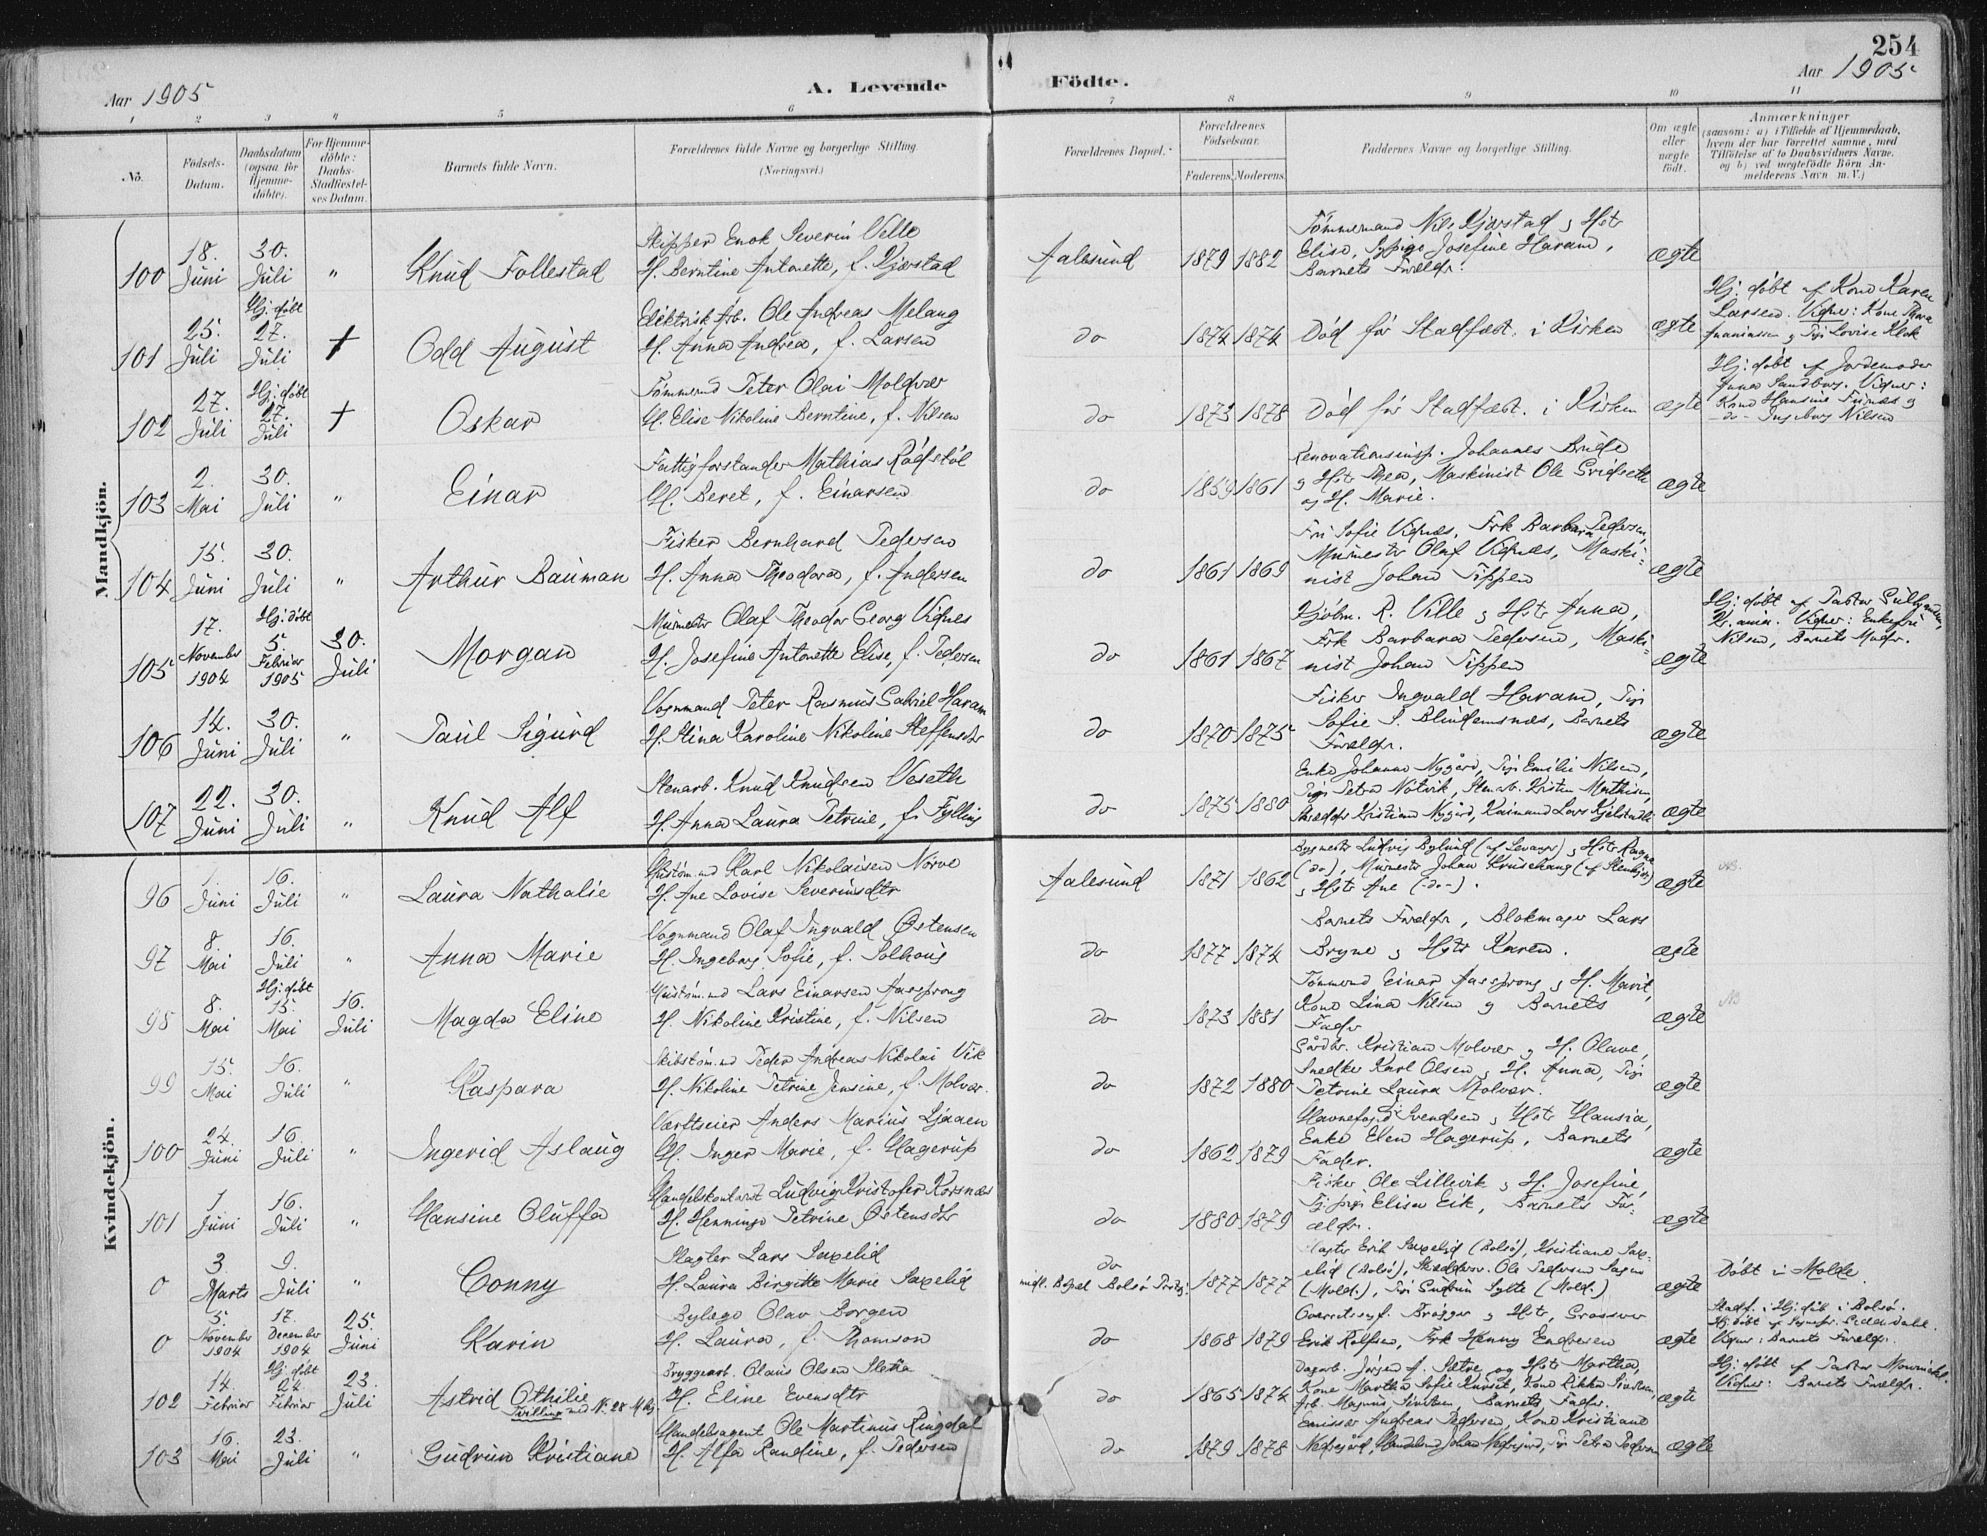 254
Aar 1905
A. Levende Födte.
Aar 1905
1 2 3 4 5 6 7 8 9 10 11
No.
Födsels-Datum.
Daabsdatum (ogsaa for Hjemme-döbte).
For Hjemme-döbte: Daabs-Stadfæstel-ses Datum.
Barnets fulde Navn.
Forældrenes fulde Navne og borgerlige Stilling. (Næringsvei.)
Forældrenes Bopæl.
Forældrenes Födselsaar.
Faderens. Moderens.
Faddernes Navne og borgerlige Stilling.
Om ægte eller uægte födt.
Anmærkninger
(saasom: a) i Tilfælde af Hjemmedaab,
hvem der har forrettet samme, med
Tilföielse af to Daabsvidners Navne.
og b) ved uægtefödte Börn An-
melderens Navn m. V.)
Mandkjön.
100 18. Juni 30. Juli " Knud Follestad
Skipper Enok Severin Velle
H. Berntine Antonette, f. Kjærstad
Aalesund 1879 1882
Tømmermand Nils Kjærstad og Hstr
Elise, Sypige Josefine Haram,
Barnets Foreldr.
ægte
101 25. Juli Hj: døbt 27. Juli + Odd August
Elektrisk Arb. Ole Andreas Melang
H. Anna Andrea, f. Larsen
do 1874 1874
Død før Stadfæst. i Kirken
ægte
Hj: døbt af Kone Karen
Larsen. Vidner: Kone Thora
Ananiassen og Pige Lovise Klok
102 27. Juli Hj: døbt 27. Juli + Oskar
Tømmermd Peter Olai Moldvær
H. Elise Nikoline Berntine, f. Nilsen
do 1873 1878
Død før Stadfæst. i Kirken
ægte
Hj: døbt af Jordemoder
Anna Sandborg. Vidner:
Kone Hansine Furnæs og
-do- Ingeborg Nilsen
103 2. Mai 30. Juli " Einar
Fattigforstander Mathias Rødstøl
H. Beret, f. Einarsen
do 1859 1861
Renovationsinsp. Johannes Brude
og Hstr Thea, Maskinist Ole Gridseth
og H. Marie.
ægte
104 15. Juni 30. Juli " Arthur Bauman
Fisker Bernhard Pedersen
H. Anna Theodora, f. Andersen
do 1861 1869
Fru Sofie Vignæs, Frk Barbara Pedersen,
Murmester Olaf Vignæs, Maski-
nist Johan Tippen
ægte
105 17. November 1904 Hj: døbt 5. Februar 1905 30. Juli Morgan
Murmester Olaf Theodor Georg Vignes
H. Josefine Antonette Elise, f. Pedersen
do 1861 1867
Kjøbm. R. Ville og Hstr Anna,
Frk Barbara Pedersen, Maski-
nist Johan Tippen
ægte
Hj: døbt af Pastor
Kr.ania. Vidner: Enkefru
Nilsen, Barnets Modr.
106 14. Juni 30. Juli " Paul Sigurd
Vognmand Peter Rasmus Gabriel Haram
H. Stina Karoline Nikoline Steffensdtr
do 1870 1875
Fisker Ingvald Haram, Pige
Sofie S. Blindemsnæs, Barnets
Foreldr.
ægte
107 22. Juni 30. Juli " Knud Alf
Stenarb. Knud Knudsen Veseth
H. Anna Laura Petrine, f. Fylling
do 1875 1880
Enke Johanne Nygård, Pige Emilie Nilsen,
Pige Petra Notvik, Stenarb. Kristen Mathisen,
Skrædder Kristian Nygård, Lars
ægte
Kvindekjön.
96 1. Juni 16. Juli " Laura Nathalie
Karl Nikolaisen Norve
H. Ane Lovise Severinsdtr
Aalesund 1871 1862
Bygmester Ludvig Bylund (af Levanger) og Hstr Ragna
(do), Murmester Johan (af Stenkjær)
og Hstr Ane (-do-).
ægte
NB.
97 8. Mai 16. Juli " Anna Marie
Vognmand Olaf Ingvald Østensen
H. Ingeborg Sofie, f. Solhaug
do 1877 1874
Barnets Foreldr, Blokmager Lars
Bryne og Hstr Karen.
ægte
98 8. Mai Hj: døbt 15. Mai 16. Juli Magda Eline
Lars Einarsen Aarsprong
H. Nikoline Kristine, f. Nilsen
do 1873 1881
Tømmermd Einar Aarsprong og H. Marit,
Kone Lina Nilsen og Barnets
Fader
ægte
NB
99 15. Mai 16. Juli " Kaspara
Skibstøm.md Peder Andreas Nikolai Vik
H. Nikoline Petrine Jensine, f. Molvær.
do 1872 1880
Gårdbr. Kristian Molvær og H. Olave,
Snedker Karl Olsen og H. Anna, Pige
Petrine Laura Molvær.
ægte
100 24. Juni 16. Juli " Ingerid Aslaug
Værftseier Anders Marius Liaaen
H. Inger Marie, f. Hagerup
do 1862 1879
Havnefogd Svendsen og Hstr Hansia,
Enke Elen Hagerup, Barnets
Fader.
ægte
101 1. Juni 16. Juli " Hansine Oluffa
Handelskontorist Ludvig Kristofer Korsnæs
H. Henninge Petrine Østensdtr
do 1880 1879
Fisker Ole Lillevik og H. Josefine,
Sypige Elisa Eik, Barnets For-
ældr.
ægte
0 3. Marts 9. Juli " Conny
Slagter Lars Saxelid
H. Laura Birgitte Marie Saxelid
do
midl. Bopæl Bolsø Prstgj. 1877 1877
Slagter Erik Saxelid (Bolsø), Kristiane Sax-
elid (Bolsø), Skrædderm. Ole Pedersen
(Molde), Pige Gudrun Sylte (Molde)
ægte
Døbt i Molde.
0 5. November 1904 17. December 1904 25. Juni Karin
Bylæge Olav Borgen
H. Laura, f. Thomson
do 1868 1879
Overretssagf. Brøgger og Hst, Grosserer
Erik Rolfsen, Frk Henny Endresen
ægte
Stadf. i Hj: døb i Bolsø.
Hj: døbt af
Vidner: Barnets Foreldr.
102 14. Februar Hj: døbt 24. Februar 23. Juli Astrid Othilie
Tvilling med No. 28 M.kj.
Bryggearb. Olaus Olsen Sletta
H. Eline Evensdtr
do 1865 1874
Dagarb. Jørgen J. Sætre og Hstr Martha,
Kone Martha Sofie Kurset, Kone Rikka Sivertsen,
Arb. Magnus Sivertsen, Barnets Fader.
ægte
Hj: døbt af Pastor
Vidner: Barnets Foreldr.
103 16. Mai 23. Juli " Gudrun Kristiane
Handelsagent Ole Martinus Ringdal
H. Alfa Randine, f. Pedersen
do 1879 1878
Emissær Andreas Pedersen, Kone Kristiane
Nedregård, Johan Nedregård, Pige Petra Pedersen
ægte